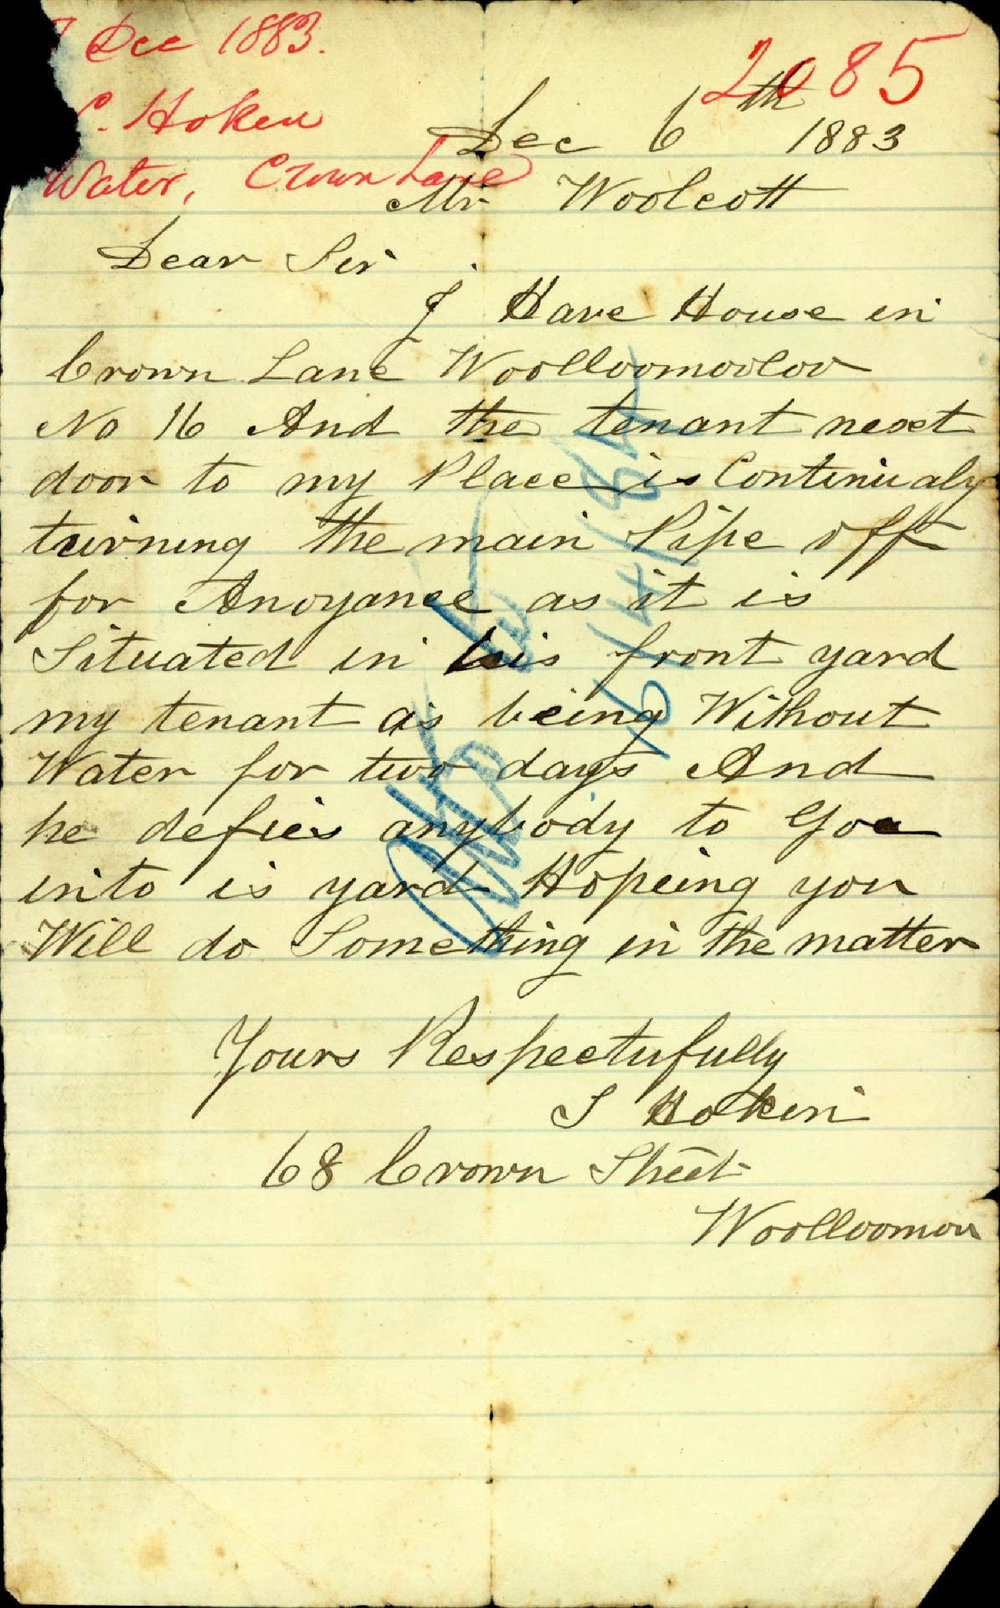 Dec 1883.
2085
C. Hoken
Dec 6th 1883
Water, Crown Lane
Mr Woolcott
Dear Sir
I Have House in
Crown Lane Woolloomooloo
No 16 And the tenant next
door to my Place is Continualy
turning the main Pipe off
for Anoyance as it is
Situated in his front yard
my tenant as being Without
Water for two days And
he defies anybody to Goe
into is yard Hopeing you
Will do Something in the matter
Yours Respectufully
S Hoken
68 Crown Street
Woolloomoo
16/4/84